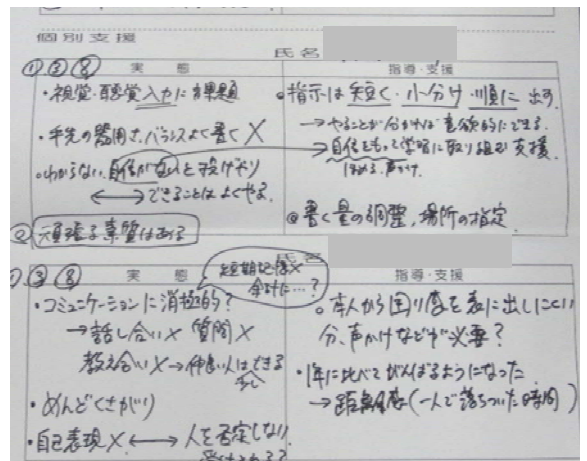 個別支援
氏名
①③⑧ 実態
・視覚・聴覚入力に課題
・手先の器用さ、バランスよく書く ×
・わからない、自信がないと投げやり
←→できることはよくやる。
②頑張る素質はある
指導・支援
◎指示は短く・小分け・順に出す
→やることが分かれば意欲的にできる。
→自信をもって学習に取り組む支援
ほめる、声かけ
◎書く量の調整、場所の指定
氏名
③⑧ 実態
短期記憶×
余計に…?
・コミュニケーションに消極的?
→話し合い× 質問×
教え合い×→仲良い人はできる
少し
・めんどくさがり
・自己表現×←→人を否定しない
指導・支援
○本人から困り度を表に出しにくい
分、声かけなどが必要?
・1年に比べてがんばるようになった
→距離感(一人で落ちついた時間)